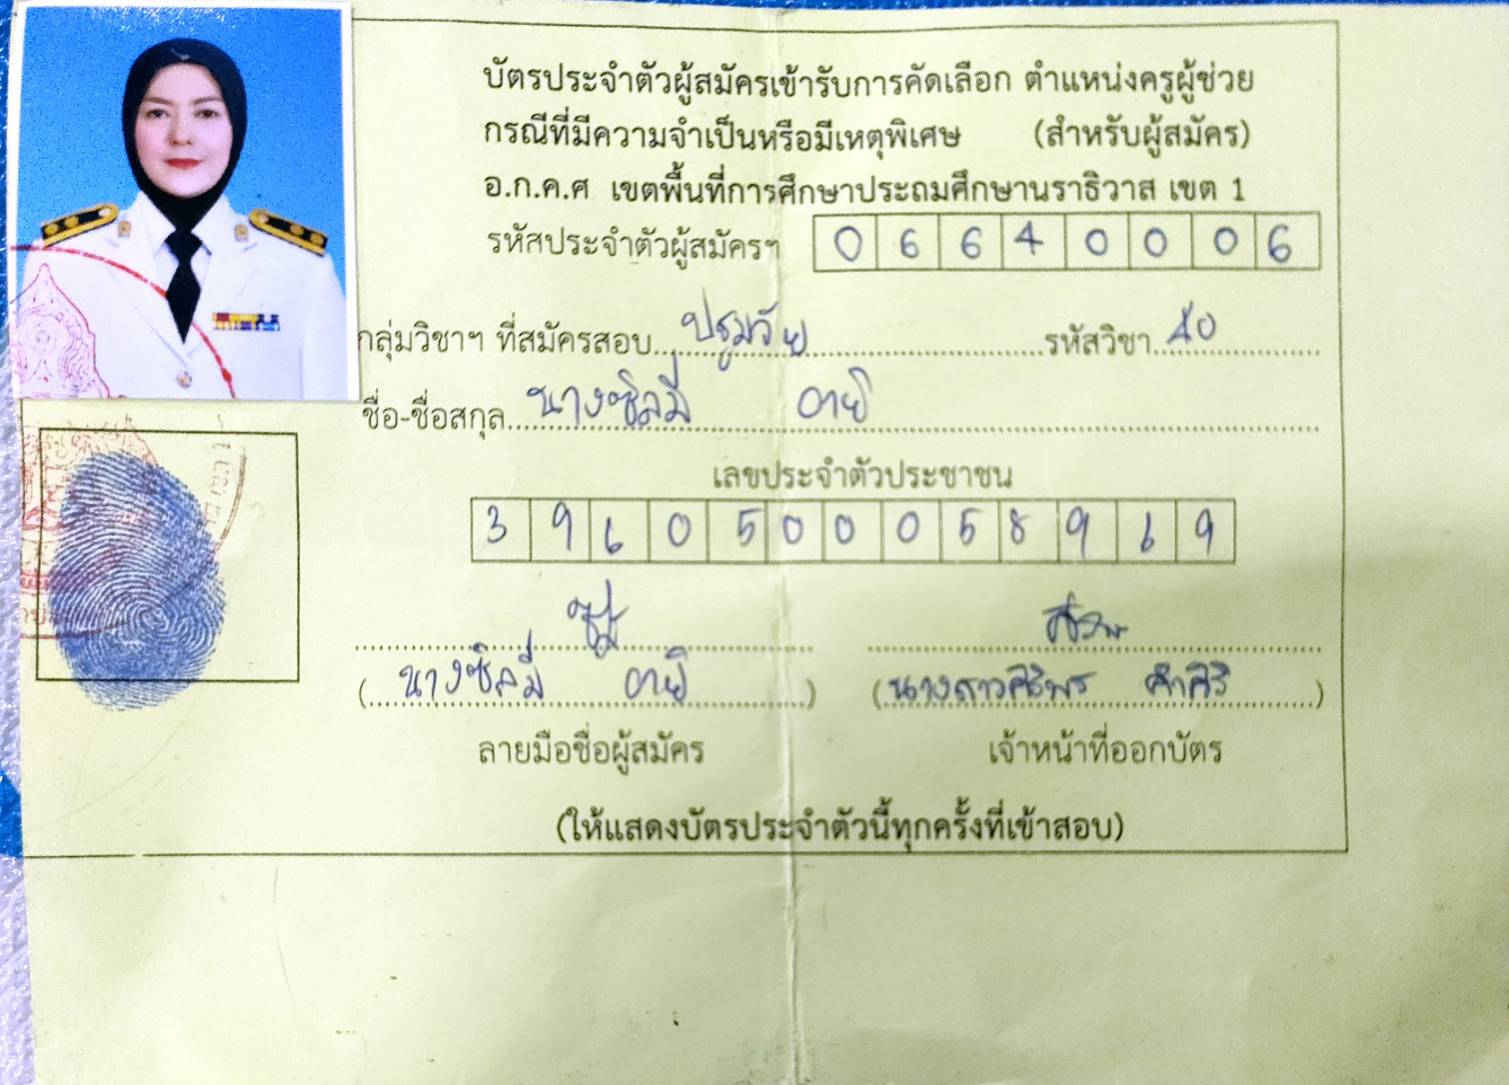 บัตรประจำตัวผู้สมัครเข้ารับการคัดเลือก ตำแหน่งครูผู้ช่วย
กรณีที่มีความจำเป็นหรือมีเหตุพิเศษ (สำหรับผู้สมัคร)
อ.ก.ค.ศ เขตพื้นที่การศึกษาประถมศึกษานราธิวาส เขต 1
รหัสประจำตัวผู้สมัครฯ 0 6 6 4 0 0 0 6
กลุ่มวิชาฯ ที่สมัครสอบ ปฐมวัย รหัสวิชา
ชื่อ-ชื่อสกุล นางซิลมี อายิ
เลขประจำตัวประชาชน
3 9 6 0 5 0 0 0 5 8 9 6 9
(นางซิลมี อายิ) (นางสาวศิริพร)
ลายมือชื่อผู้สมัคร เจ้าหน้าที่ออกบัตร
(ให้แสดงบัตรประจำตัวนี้ทุกครั้งที่เข้าสอบ)